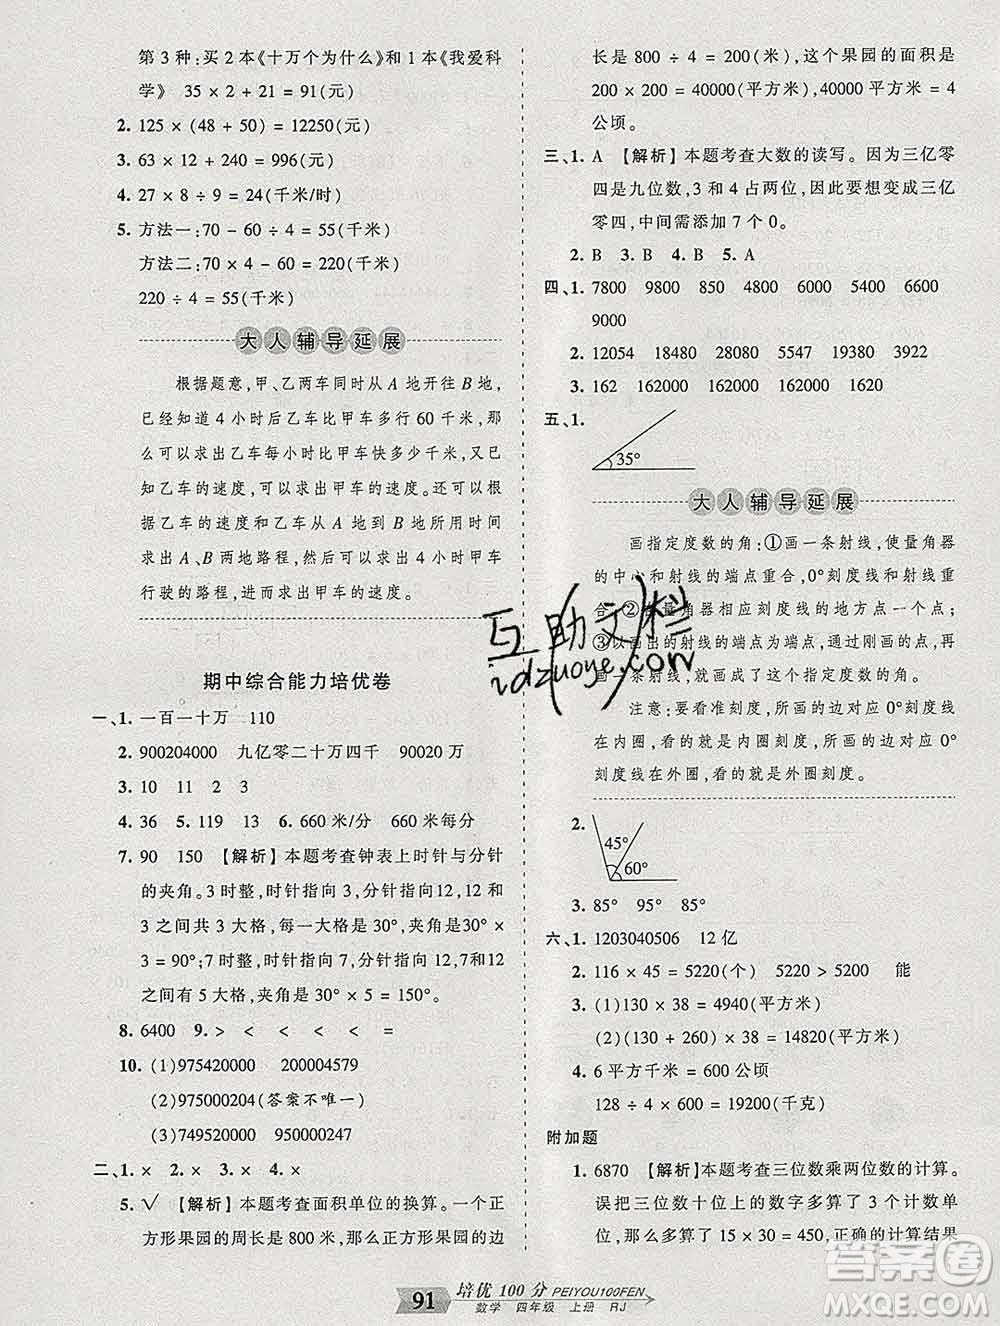 第3种：买2本《十万个为什么》和1本《我爱科
学》 35 × 2 + 21 = 91(元)
2. 125 × (48 + 50) = 12250(元)
3. 63 × 12 + 240 = 996(元)
4. 27 × 8 ÷ 9 = 24(千米/时)
5. 方法一：70 - 60 ÷ 4 = 55(千米)
方法二：70 × 4 - 60 = 220(千米)
220 ÷ 4 = 55(千米)
大人辅导延展
根据题意，甲、乙两车同时从A地开往B地，
已经知道4小时后乙车比甲车多行60千米，那
么可以求出乙车每小时比甲车快多少千米，又已
知乙车的速度，可以求出甲车的速度。还可以根
据乙车的速度和乙车从A地到B地所用时间
求出A、B两地路程，然后可以求出4小时甲车
行驶的路程，求出甲车的速度。
期中综合能力培优卷
一、1. 一百一十万 110
2. 900204000 九亿零二十万四千 90020万
3. 10 11 2 3
4. 36 5. 119 13 6. 660米/分 660米每分
7. 90 150 【解析】本题考查钟表上时针与分针
的夹角。3时整，时针指向3，分针指向12，12和
3之间共3大格，每一大格是30°，夹角是30° ×
3 = 90°；7时整，时针指向7，分针指向12，7和
12之间有5大格，夹角是30° × 5 = 150°。
8. 6400 9. > < < < < =
10. (1)975420000 200004579
(2)975000204(答案不唯一)
(3)749520000 450000247
二、1. × 2. × 3. × 4. ×
5. √ 【解析】本题考查面积单位的换算。一个正
方形果园的周长是800米，那么正方形果园的边
长是800 ÷ 4 = 200(米)，这个果园的面积是
200 × 200 = 40000(平方米)，40000平方米 = 4
公顷。
三、1. A 【解析】本题考查大数的读写。因为三亿零
四是九位数，3和4占两位，因此要想变成三亿
零四，中间需添加7个0。
2. B 3. B 4. B 5. A
四、1. 7800 9800 850 4200 5400 6600
9000
2. 12054 18480 28080 7752 39150 3922
3. 162 162000 162000 1620
五、1.
35°
大人辅导延展
画指定度数的角：①画一条射线，使量角器
的中心和射线的端点重合，0°刻度线和射线重
合；②在量角器相应刻度线的地方点一个点；
③以画出的射线的端点为端点，通过刚画的点，
再画一条射线。
注意：要看准刻度，所画的边对应0°刻度线
在内圈，看的就是内圈刻度，所画的边对应0°
刻度线在外圈，看的就是外圈刻度。
2.
45°
60°
3. 85° 95° 85°
六、1. 1203040506 12亿
2. 116 × 45 = 5220(个) 5220 > 5200 能
3. (1)130 × 38 = 4940(平方米)
(2)(130 + 260) × 38 = 14820(平方米)
4. 6平方千米 = 600公顷
128 ÷ 4 × 600 = 19200(千克)
附加题
1. 6870 【解析】本题考查三位数乘两位数的计算。
误把三位数十位上的数字多算了3个计数单
位，那么多算了15 × 30 = 450，正确的计算结果
91 培优100分 PEIYOU100FEN
数学 四年级 上册 RJ
互助文栏
idzuoye.com
答案圈
MXQE.COM